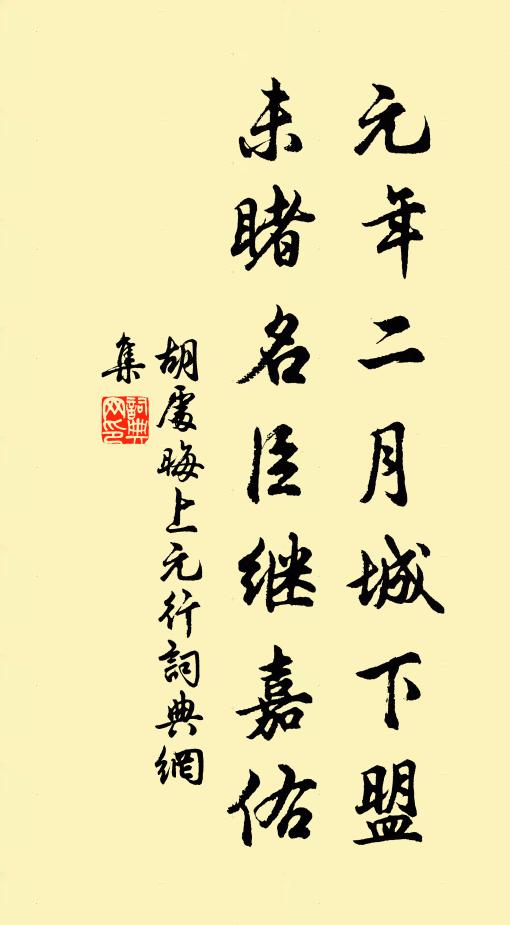 元年二月城下盟
未睹名臣继嘉佑
胡處晦上元行詞典網
集
詞典
网印